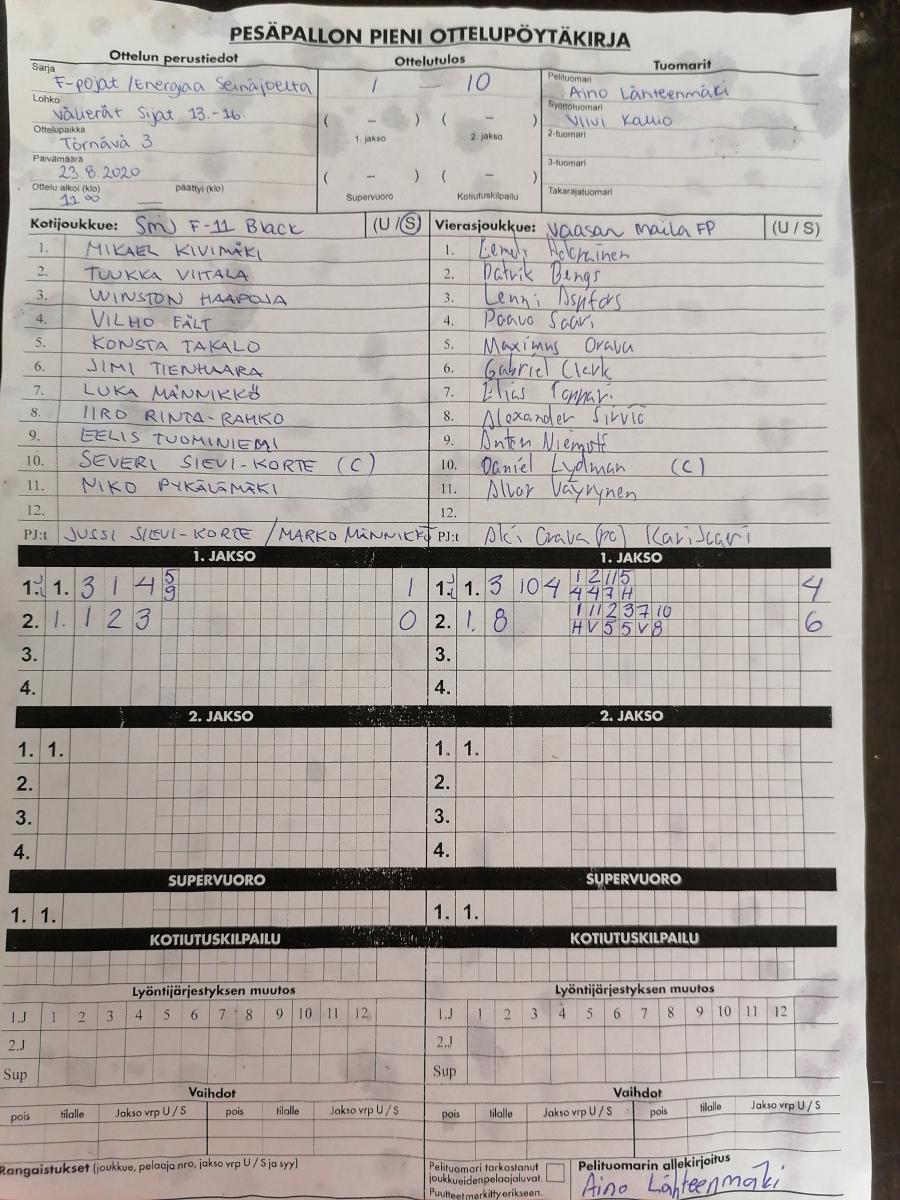 PESÄPALLON PIENI OTTELUPÖYTÄKIRJA
Ottelun perustiedot
Ottelutulos
Tuomarit
Sarja
F-pojat /Energiaa Seinäjoelta
Lohko
Välierät Sijat 13.-16.
Ottelupaikka
Törnävä 3
Päivämäärä
23.8.2020
Ottelu alkoi (klo) päättyi (klo)
11 00
1 – 10
( – ) ( – )
1. jakso 2. jakso
( – ) ( – )
Supervuoro Kotiutuskilpailu
Pelituomari
Aino Lähteenmäki
Syöttötuomari
Viivi Kallio
2-tuomari
3-tuomari
Takarajatuomari
Kotijoukkue: SMJ F-11 Black (U / S)
1. MIKAEL KIVIMÄKI
2. TUUKKA VIITALA
3. WINSTON HAAPOJA
4. VILHO FÄLT
5. KONSTA TAKALO
6. JIMI TIENHAARA
7. LUKA MÄNNIKKÖ
8. IIRO RINTA-RAHKO
9. EELIS TUOMINIEMI
10. SEVERI SIEVI-KORTE (C)
11. NIKO PYKÄLÄMÄKI
12.
PJ:t JUSSI SIEVI-KORTE / MARKO MÄNNIKKÖ
Vierasjoukkue: Vaasan Maila FP (U / S)
1.
2. Patrik Bengs
3. Lenni
4. Paavo Saari
5. Maximus Orava
6. Gabriel Clerk
7. Elias
8. Alexander Sirviö
9. Anton
10. Daniel Lydman (C)
11. Alvar Väyrynen
12.
PJ:t Aki Orava (pc) Kari Saari
1. JAKSO
1. 1. 3 1 4 5 1
9
2. 1. 1 2 3 0
3.
4.
1. JAKSO
1. 1. 3 10 4 1 2 11 5 4
4 4 7 H
2. 1. 8 1 11 2 3 7 10 6
H V 5 5 V 8
3.
4.
2. JAKSO
1. 1.
2.
3.
4.
2. JAKSO
1. 1.
2.
3.
4.
SUPERVUORO
1. 1.
SUPERVUORO
1. 1.
KOTIUTUSKILPAILU
KOTIUTUSKILPAILU
Lyöntijärjestyksen muutos
1.J 1 2 3 4 5 6 7 8 9 10 11 12
2.J
Sup
Lyöntijärjestyksen muutos
1.J 1 2 3 4 5 6 7 8 9 10 11 12
2.J
Sup
Vaihdot
pois tilalle Jakso vrp U / S pois tilalle Jakso vrp U / S
Vaihdot
pois tilalle Jakso vrp U / S pois tilalle Jakso vrp U / S
Rangaistukset (joukkue, pelaaja nro, jakso vrp U / S ja syy)
Pelituomari tarkastanut
joukkueidenpelaajaluvat.
Puutteet merkitty erikseen.
Pelituomarin allekirjoitus
Aino Lähteenmäki